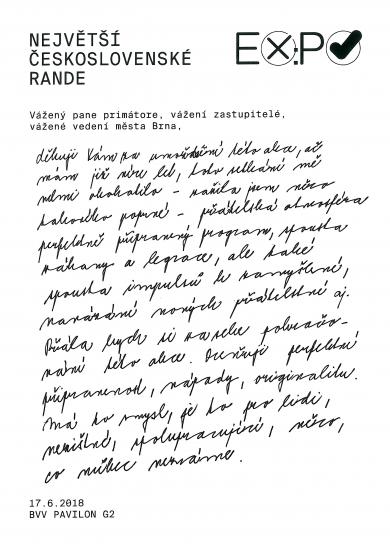 NEJVĚTŠÍ
ČESKOSLOVENSKÉ
RANDE
EXPO
Vážený pane primátore, vážení zastupitelé,
vážené vedení města Brna,
děkuji Vám za umožnění této akce, ač
mám již více let, toto setkání mě
velmi obohatilo – zažila jsem něco
takového poprvé – přátelská atmosféra
perfektně připravený program, spousta
zábavy a legrace, ale také
spousta impulsů k zamyšlení,
navázání nových přátelství aj.
Přála bych si za sebe pokračo-
vání této akce. Oceňuji perfektní
připravenost, nápady, originalitu.
Má to smysl, je to pro lidi,
spolupracující, něco,
co vůbec neznáme.
17.6.2018
BVV PAVILON G2